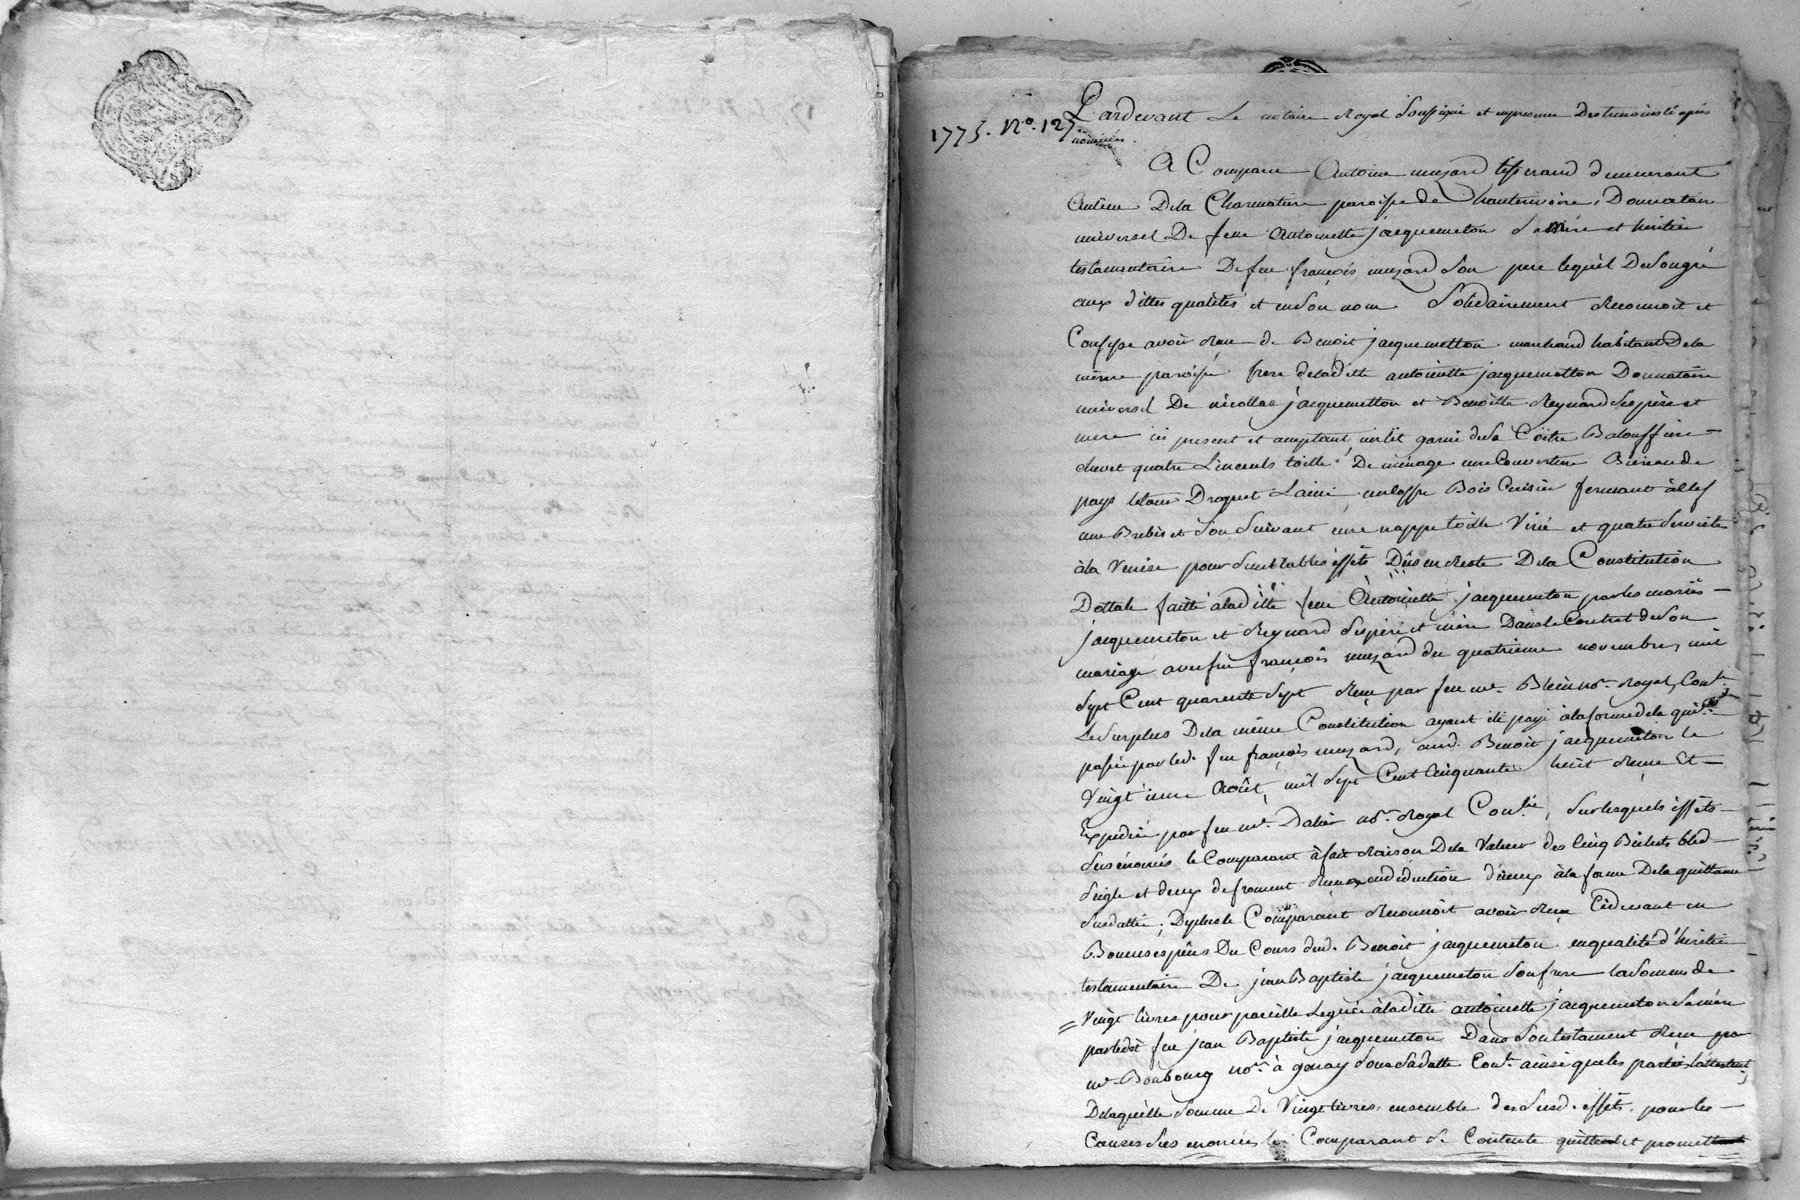 1775. N.° 127
Pardevant Le notaire Royal Soussigné et en presence Des temoins cy après
nommés.
A Comparu Antoine muzard tisserand demeurant
Aulieu Dela Charmature paroisse de Donnataire
universel De feue Antoinette jacquemeton Sa mére et héritier
testamentaire De feu françois muzard Son pere lequel De Songré
aux dittes qualités et en Son nom Solidairement Reconnoit et
Confesse avoir Recu de Benoit jacquemetton marchand habitant Dela
même paroisse frere deladitte antoinette jacquemetton Donnataire
universel De nicollas jacquemetton et Benoitte Reynard Ses père et
mere ici present et acceptant, un lit garni de Sa Coitre Balouffiere
chevet quatre Linceuls toille De ménage une Couverture
pays Droguet Laine un Coffre Bois Cerisier fermant à clef
une Brebis et Son Suivant une nappe toille et quatre Serviettes
à la Venise pour Semblables éffets Dûs en Reste Dela Constitution
Dottale faitte à laditte feue Antoinette jacquemeton par les mariés
jacquemeton et Reynard Ses père et mère Dans le Contrat de Son
mariage avec feu françois muzard du quatrieme novembre, mil
Sept Cent quarente Sept Reçu par feu me. Blein nre. Royal, Conlé.
Le Surplus Dela même Constitution ayant été payé à la forme de la quitce.
passée par led. feu françois muzard, aud. Benoit jacquemeton le
Vingt Août, mil Sept Cent Cinquante huit Reçue Et
Expediée par feu me. Dalier nre. Royal Conlé, Sur lesquels éffets
Sus énoncés le Comparant à fait Raison Dela Valeur des Cinq Bichets bled
Seigle et deux de froment Reçus en déduction d'iceux à la forme De la quittance
Susdattée; De plus le Comparant Reconnoit avoir Reçu Cidevant en
Bonnes espèces Du Cours dud. Benoit jacquemeton en qualité d'héritier
testamentaire De jean Baptiste jacquemeton Son frere la Somme de
Vingt livres pour pareille Leguée à laditte antoinette jacquemeton Sa mére
par ledit feu jean Baptiste jacquemeton Dans Son testament Reçu par
me. Bonbourg nore. à Sous Sa datte Conlé. ainsi que les parties l'attestent,
De laquelle Somme De Vingt livres, ensemble des Susd. éffets, pour les
Causes Sus énoncées le Comparant Se Contente quitte et promet